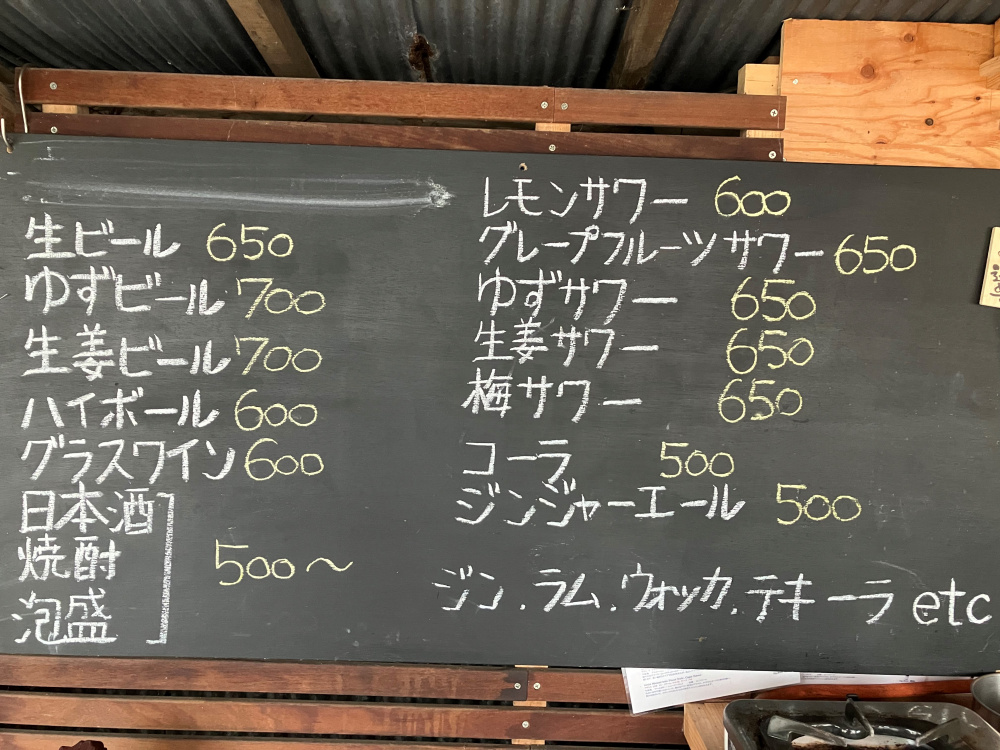 生ビール 650
ゆずビール 700
生姜ビール 700
ハイボール 600
グラスワイン 600
日本酒
焼酎 500〜
泡盛
レモンサワー 600
グレープフルーツサワー 650
ゆずサワー 650
生姜サワー 650
梅サワー 650
コーラ 500
ジンジャーエール 500
ジン.ラム.ウォッカ.テキーラ etc